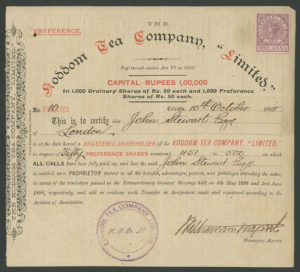 THE
PREFERENCE.
Koddom Tea Company, "Limited,"
Registered under Act VI of 1882.
CAPITAL RUPEES 1,00,000
In 1,000 Ordinary Shares of Rs. 50 each and 1,000 Preference
Shares of Rs. 50 each.
No. 10 Calcutta, 10th October
This is to certify that John Stewart Esqr
London
is at this date a REGISTERED SHAREHOLDER of the KODDOM TEA COMPANY, "LIMITED,"
in respect of Fifty PREFERENCE SHARES numbered 451 to 500 on which
ALL CALLS have been fully paid up, and that the said John Stewart Esqr
is entitled as a PROPRIETOR thereof to all the benefits, advantages, powers, and privileges attending the same,
in terms of the resolution passed at the Extraordinary General Meetings held on 4th May 1898 and
1898, and will so continue until Transfer or Assignment made and registered according to the Articles
of Association.
KODDOM TEA COMPANY LIMITED
Managing Agents.